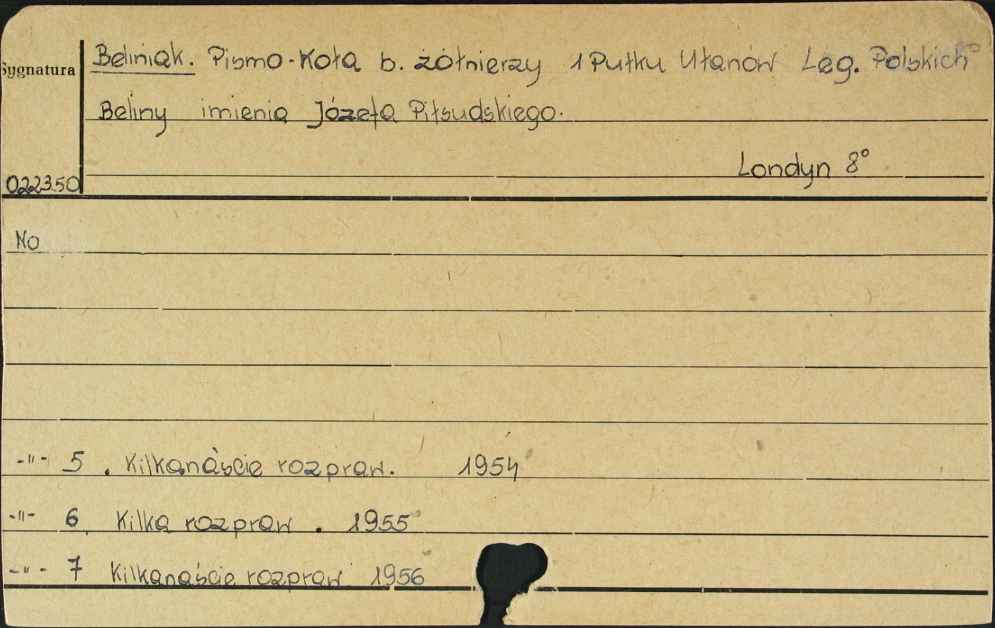 Sygnatura Beliniak. Pismo-Koła b. żółnierzy 1 Pułku Ułanów Leg. Polskich
Beliny imienia Józefa Piłsudskiego.
022350 Londyn 8°
No
-"- 5. Kilkanaście rozpraw. 1954
-"- 6. Kilka rozpraw. 1955
-"- 7 Kilkanaście rozpraw 1956